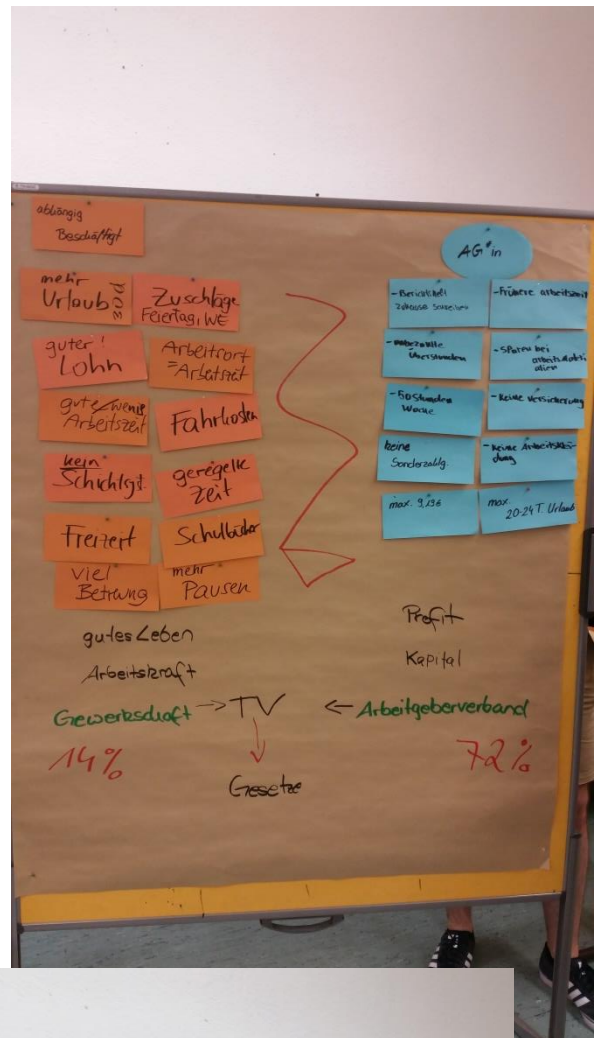 abhängig
Beschäftigt
mehr
Urlaub
30d
Zuschläge
Feiertag, WE
guter!
Lohn
Arbeitsort
=Arbeitszeit
gute/wenig
Arbeitszeit
Fahrkosten
kein
Schichtgt.
geregelte
Zeit
Freizeit
Schulbücher
viel
Betreuung
mehr
Pausen
gutes Leben
Arbeitskraft
Gewerkschaft → TV ← Arbeitgeberverband
14%
72%
Gesetze
AG*in
- Berichtsheft
zuhause schreiben
- Frühere arbeitszeit
- unbezahlte
Überstunden
- Sparen bei
- 50 stunden
Woche
- Keine versicherung
keine
Sonderzahlg.
- Keine Arbeitsklei-
dung
max. 9,19€
max.
20-24 T. Urlaub
Profit
Kapital